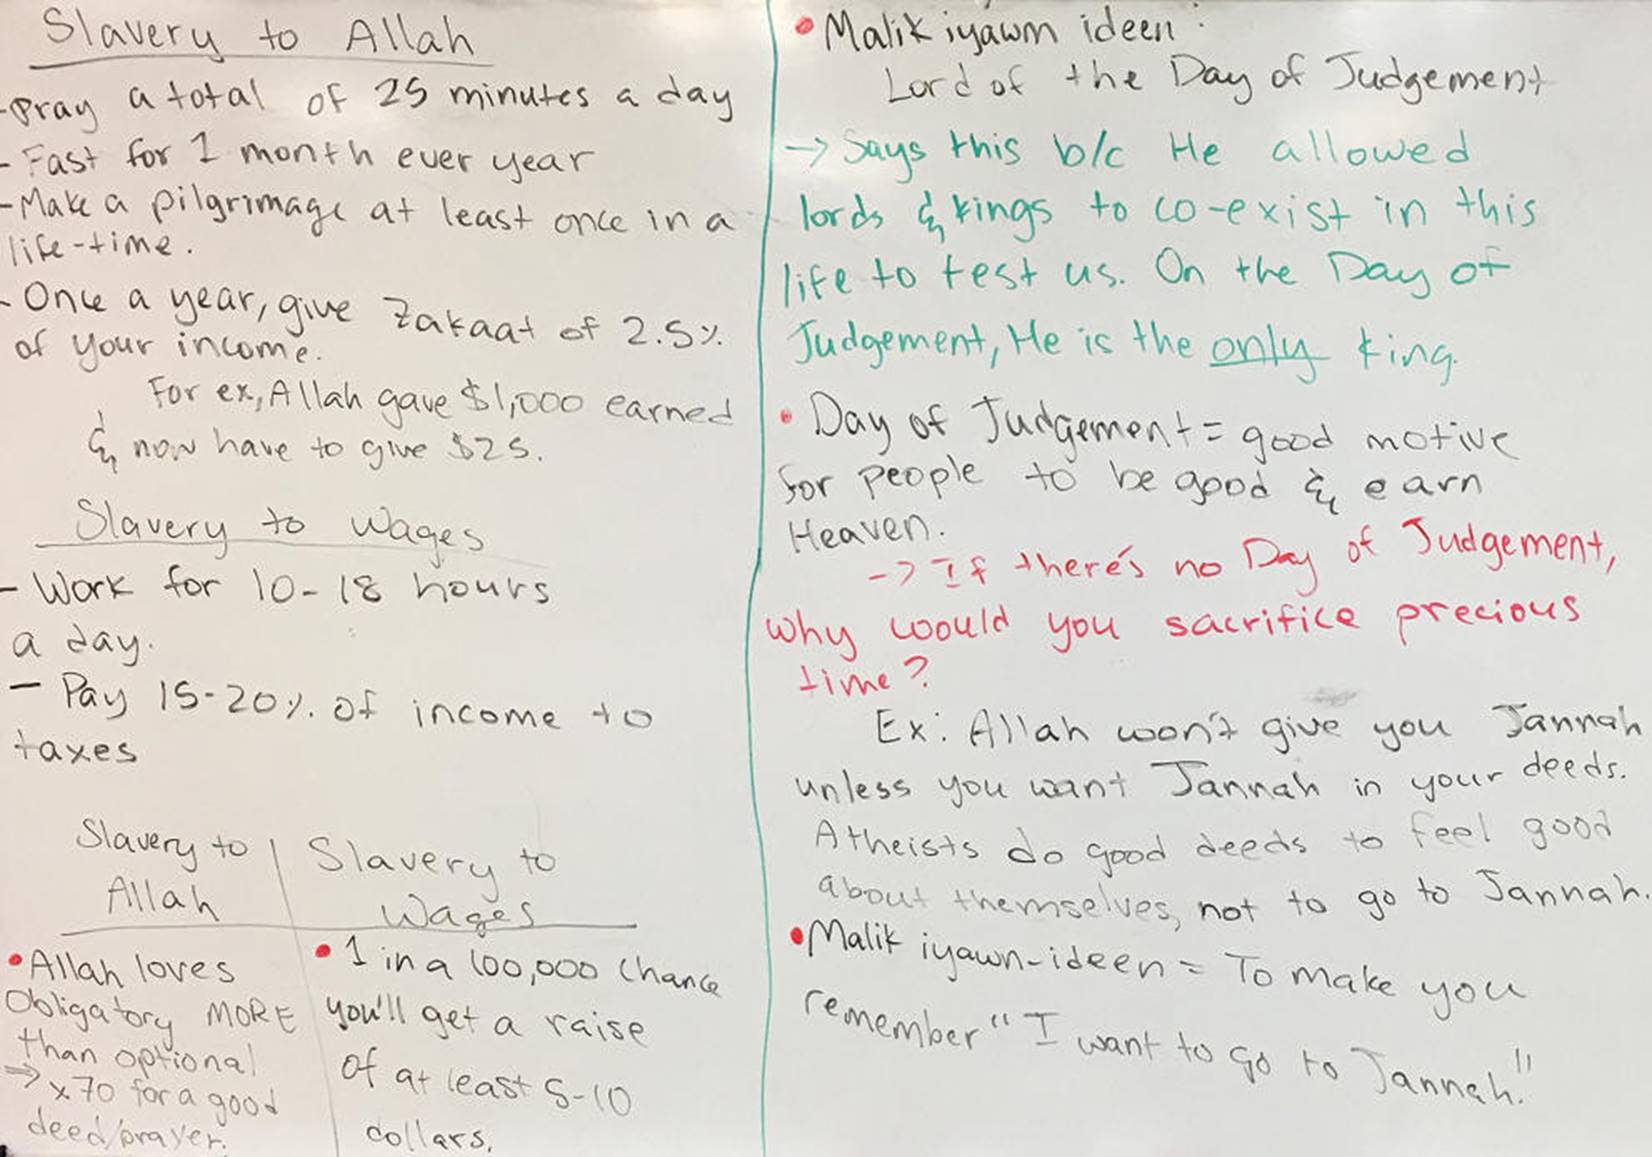 Slavery to Allah
- Pray a total of 25 minutes a day
- Fast for 1 month ever year
- Make a pilgrimage at least once in a
life-time.
- Once a year, give Zakaat of 2.5%
of your income.
For ex, Allah gave $1,000 earned
& now have to give $25.
Slavery to Wages
- Work for 10-18 hours
a day.
- Pay 15-20% of income to
taxes
Slavery to
Allah
• Allah loves
Obligatory MORE
than optional
→ x70 for a good
deed/prayer.
Slavery to
Wages
• 1 in a 100,000 chance
you'll get a raise
of at least 5-10
dollars.
• Malik iyawm ideen:
Lord of the Day of Judgement
→ Says this b/c He allowed
lords & kings to co-exist in this
life to test us. On the Day of
Judgement, He is the only king.
• Day of Judgement = good motive
for people to be good & earn
Heaven.
-> If there's no Day of Judgement,
why would you sacrifice precious
time?
Ex: Allah won't give you Jannah
unless you want Jannah in your deeds.
Atheists do good deeds to feel good
about themselves, not to go to Jannah.
• Malik iyawn-ideen = To make you
remember "I want to go to Jannah."